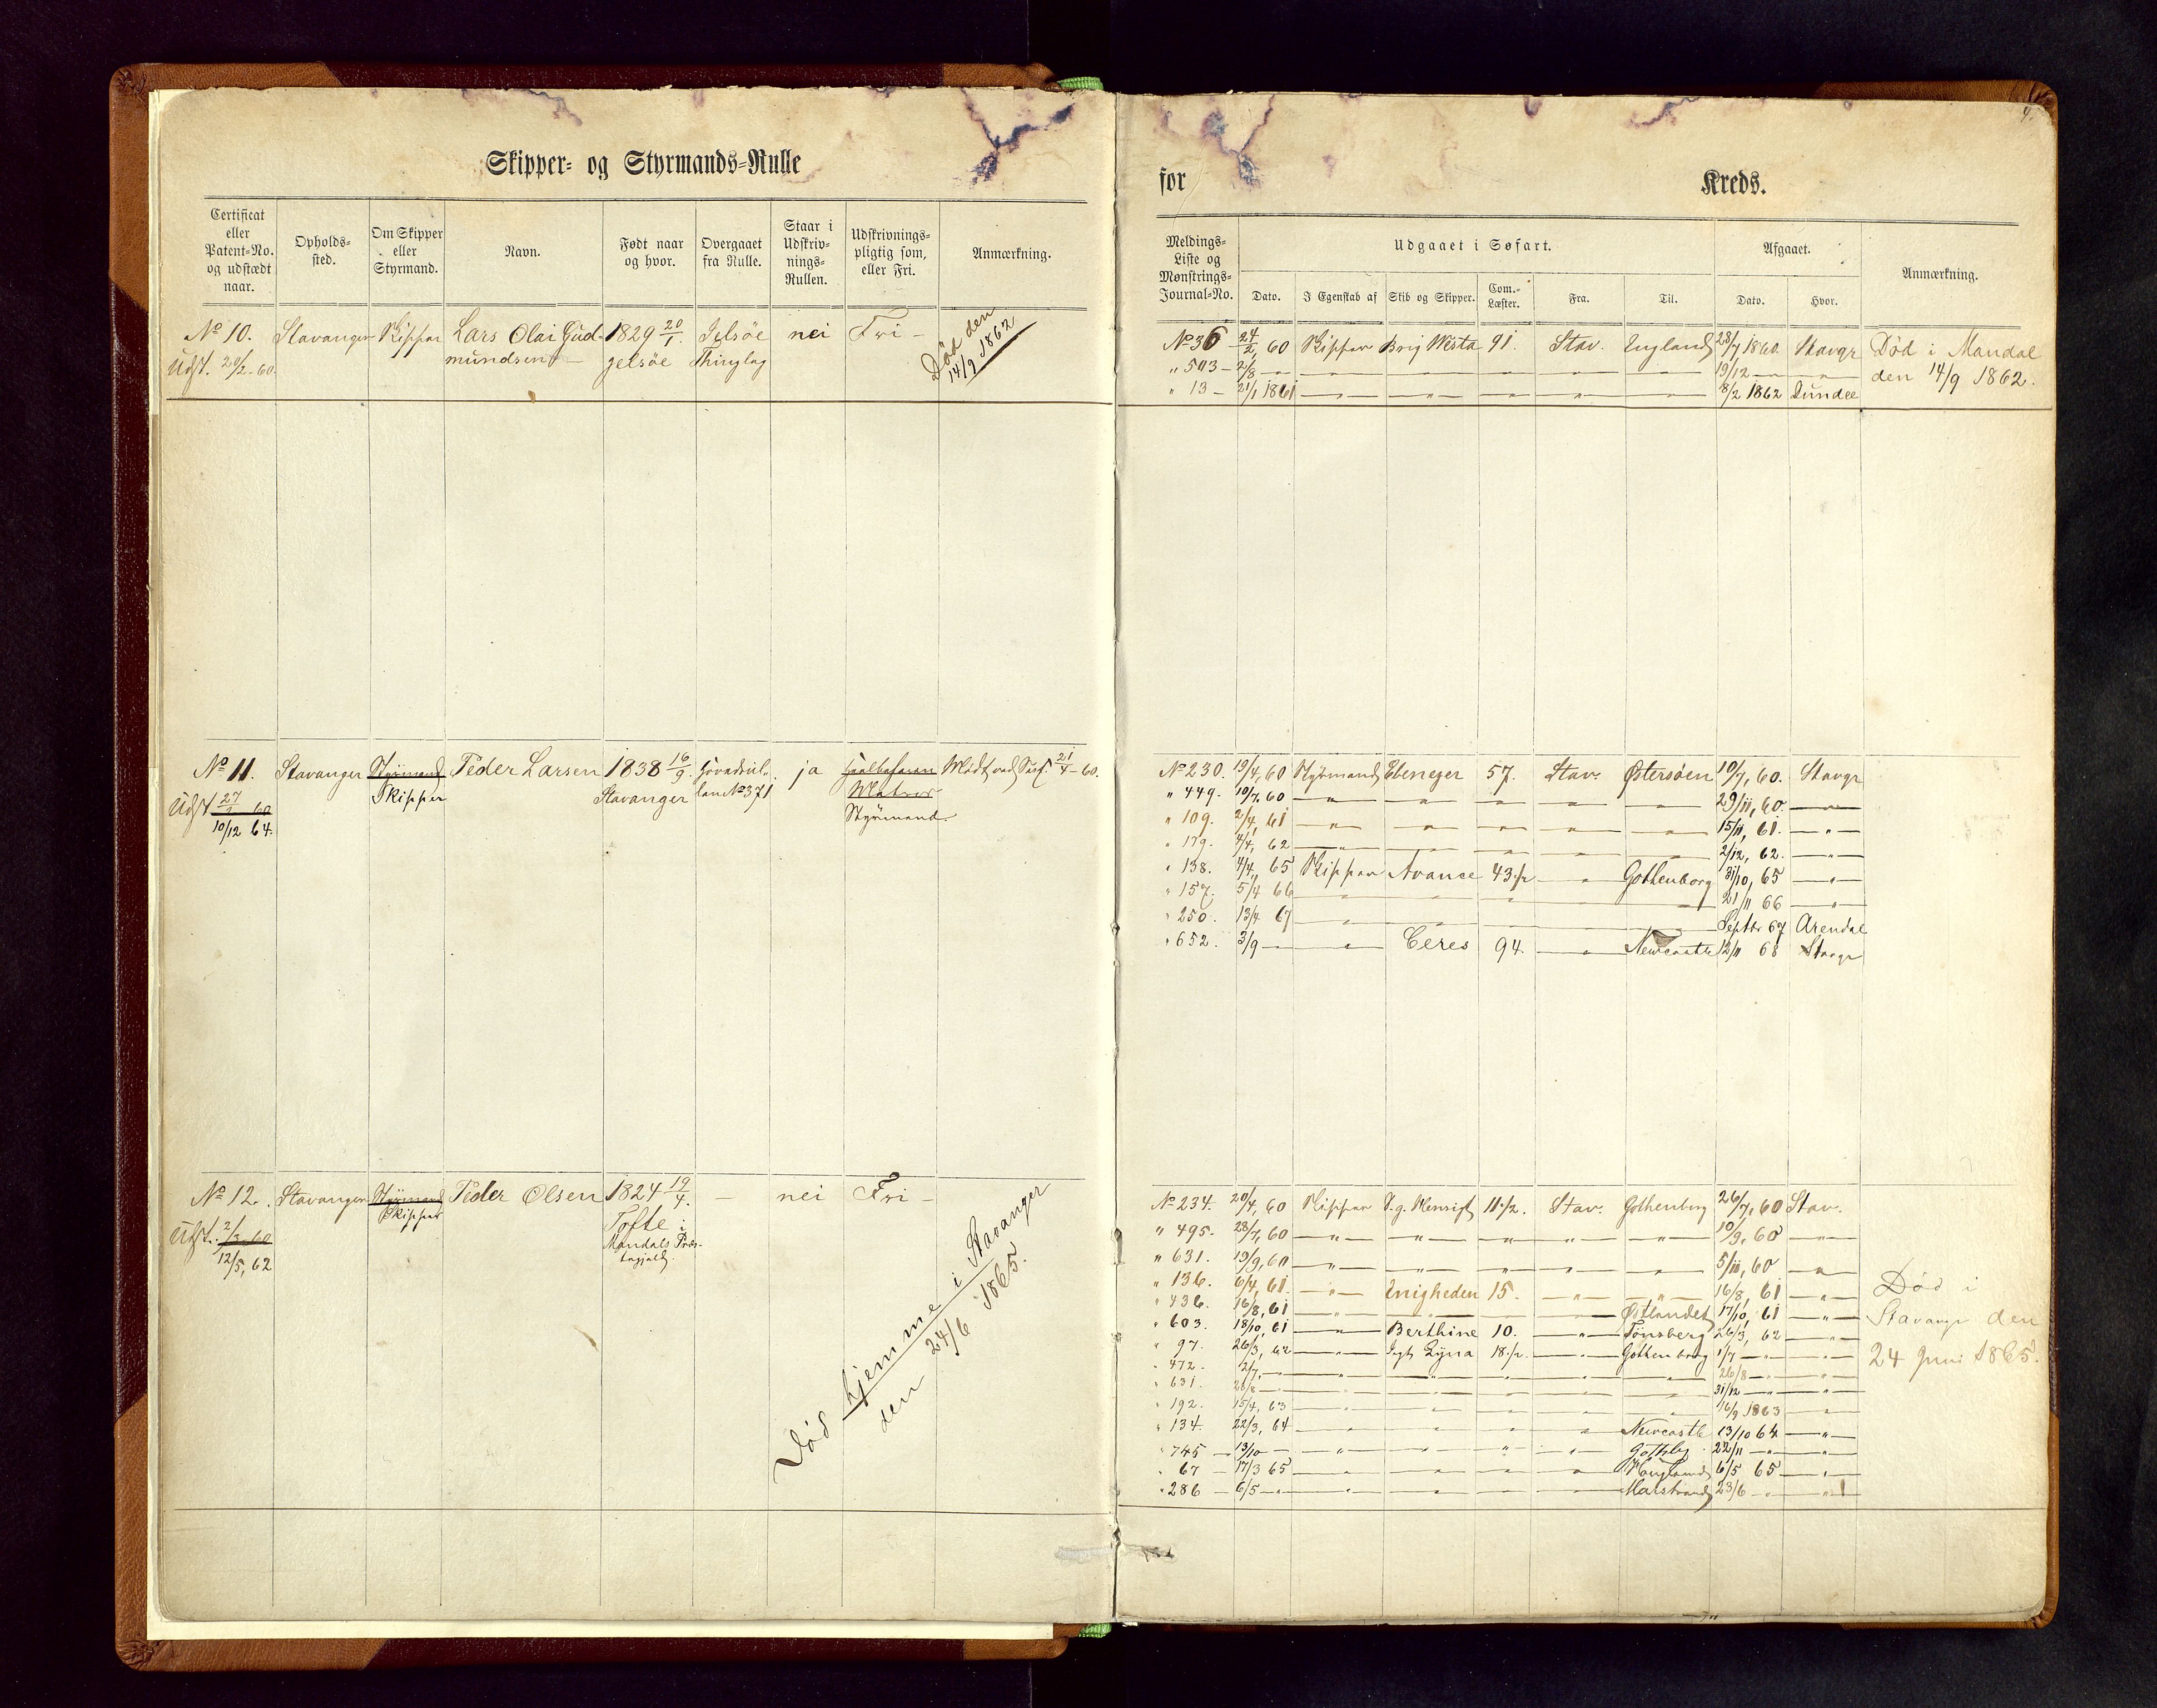 Skipper- og Styrmands-Rulle
Certificat eller Patent-No. og udstædt naar.
Opholds-sted.
Om Skipper eller Styrmand.
Navn.
Født naar og hvor.
Overgaaet fra Rulle.
Staar i Udskriv-nings-Rullen.
Udskrivnings-pligtig som, eller Fri.
Anmærkning.
No 10. Stavanger Skipper Lars Olai Gud- 1829 20/1. Jelsöe nei Fri -
Udst. 20/2 - 60. mundsen - Jelsöe Thinglag
Död den
14/9 1862
No 11. Stavanger Styrmand Peder Larsen 1838 16/9. Hovedrul- ja
Skipper Stavanger len No 371 Matros
Udst 27/2 60 Styrmand.
10/12 64.
No 12. Stavanger Styrmand Peder Olsen 1824 19/4. - nei Fri -
Skipper
Udst. 2/3 60 Tofte i
12/5, 62 Mandals Præs-
tegjeld.
Död hjemme i Stavanger
den 24/6 1865.
4.
for Kreds.
Meldings-Liste og Mønstrings-Journal-No.
Udgaaet i Søfart.
Afgaaet.
Anmærkning.
Dato. I Egenskab af Skib og Skipper. Com.-Læster. Fra. Til. Dato. Hvor.
No 36 24/2, 60 Skipper Brig Westa 91. Stav. England 28/7 1860 Stavgr
" 503 - 2/8 - " - 19/12 - " -
" 13 - 21/1 1861 - " - 8/2 1862 Dundee
Död i Mandal
den 14/9 1862.
No 230. 19/4, 60 Styrmand Ebenezer 57. Stav. Østersöen 10/7, 60. Stavgr
" 449. 10/7. 60 - " - 29/11, 60. - " -
" 109. 2/4, 61 - " - 15/11, 61. - " -
" 179. 4/4, 62 - " - 2/12, 62. - " -
" 138. 4/4, 65 Skipper Avance 43 1/2 - " - Gothenborg 31/10, 65 - " -
" 157. 5/4 66 - " - 21/11 66 - " -
" 250. 13/4 67 - " - Septbr 67 Arendal
" 652. 3/9 - " - Ceres 94. - " - Newcastle 12/11 68 Stavgr
No 234. 20/4, 60 Skipper 11 1/2. Stav. Gothenborg 26/7, 60 Stav.
" 495. 28/7, 60 - " - 10/9, 60 - " -
" 631. 19/9, 60 - " - 5/11, 60 - " -
" 136. 6/4, 61. - " - Enigheden 15. - " - 16/8, 61 - " -
" 436. 16/8, 61 - " - Østlandet 17/10, 61 - " -
" 603. 18/10, 61 - " - Berthine 10. - " - Tönsberg 26/3, 62 - " -
" 97. 26/3, 62 - " - Jagt Lyna 18 1/2. - " - Gothenborg 1/7 - " -
" 472. 2/7, - " -  26/8 - " -
" 631. 26/8 - " - 31/12 - " -
" 192. 15/4, 63 - " - 16/9 1863 - " -
" 134. 22/3, 64 - " - Newcastle 13/10 64 - " -
" 745 - 13/10 - " - Gothbg 22/11 - " -
" 67 - 17/3 65 - " - 6/5 65 - " -
" 286 - 6/5 - " - Marstrand 23/6 - " -
Död i
Stavangr den
24 Juni 1865.